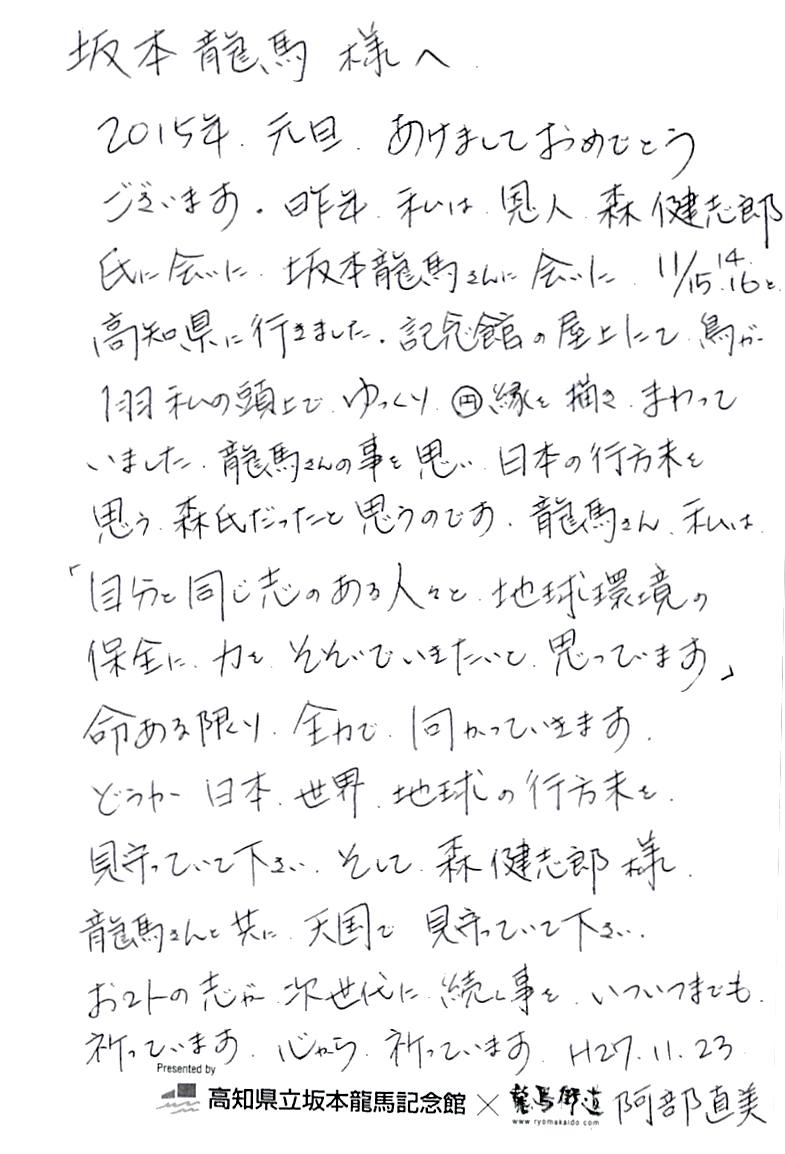 坂本龍馬様へ.
2015年.元旦.あけましておめでとう
ございます。昨年.私は.恩人.森健志郎
氏に会いに.坂本龍馬さんに会いに.11/14.15.16と
高知県に行きました。記念館の屋上にて.鳥が
1羽私の頭上で.ゆっくり.円縁を描き.まわって
いました.龍馬さんの事を思い.日本の行方末を
思う.森氏だったと思うのです.龍馬さん.私は.
「自分と同じ志のある人々と.地球環境の
保全に.力を.そそいでいきたいと.思っています」
命ある限り.全力で.向かっていきます.
どうか日本.世界.地球の行方末を.
見守っていて下さい.そして.森健志郎様.
龍馬さんと共に.天国で見守っていて下さい.
お2人の志が次世代に続く事を.いついつまでも.
祈っています.心から.祈っています.H27.11.23
Presented by
高知県立坂本龍馬記念館×龍馬街道 阿部直美
www.ryomakaido.com